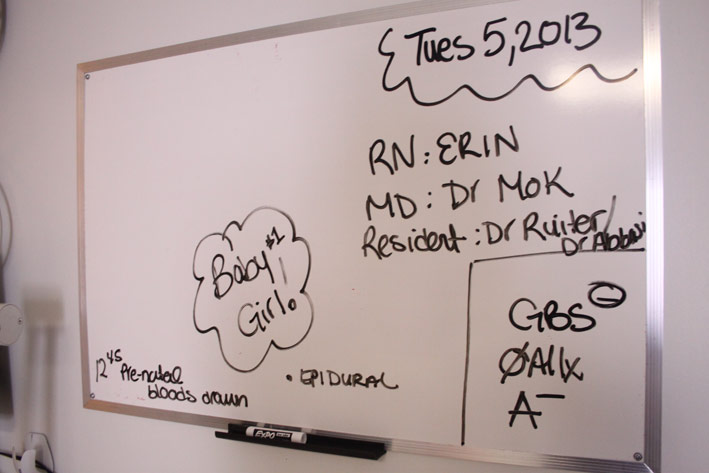 Tues 5, 2013
RN: ERIN
MD: Dr MOK
Resident: Dr Ruiter/
Dr Abbasi
Baby #1
Girl.
GBS ⊖
ØAllx
A-
12 45 Pre-natal
bloods drawn
• EPIDURAL
EXPO